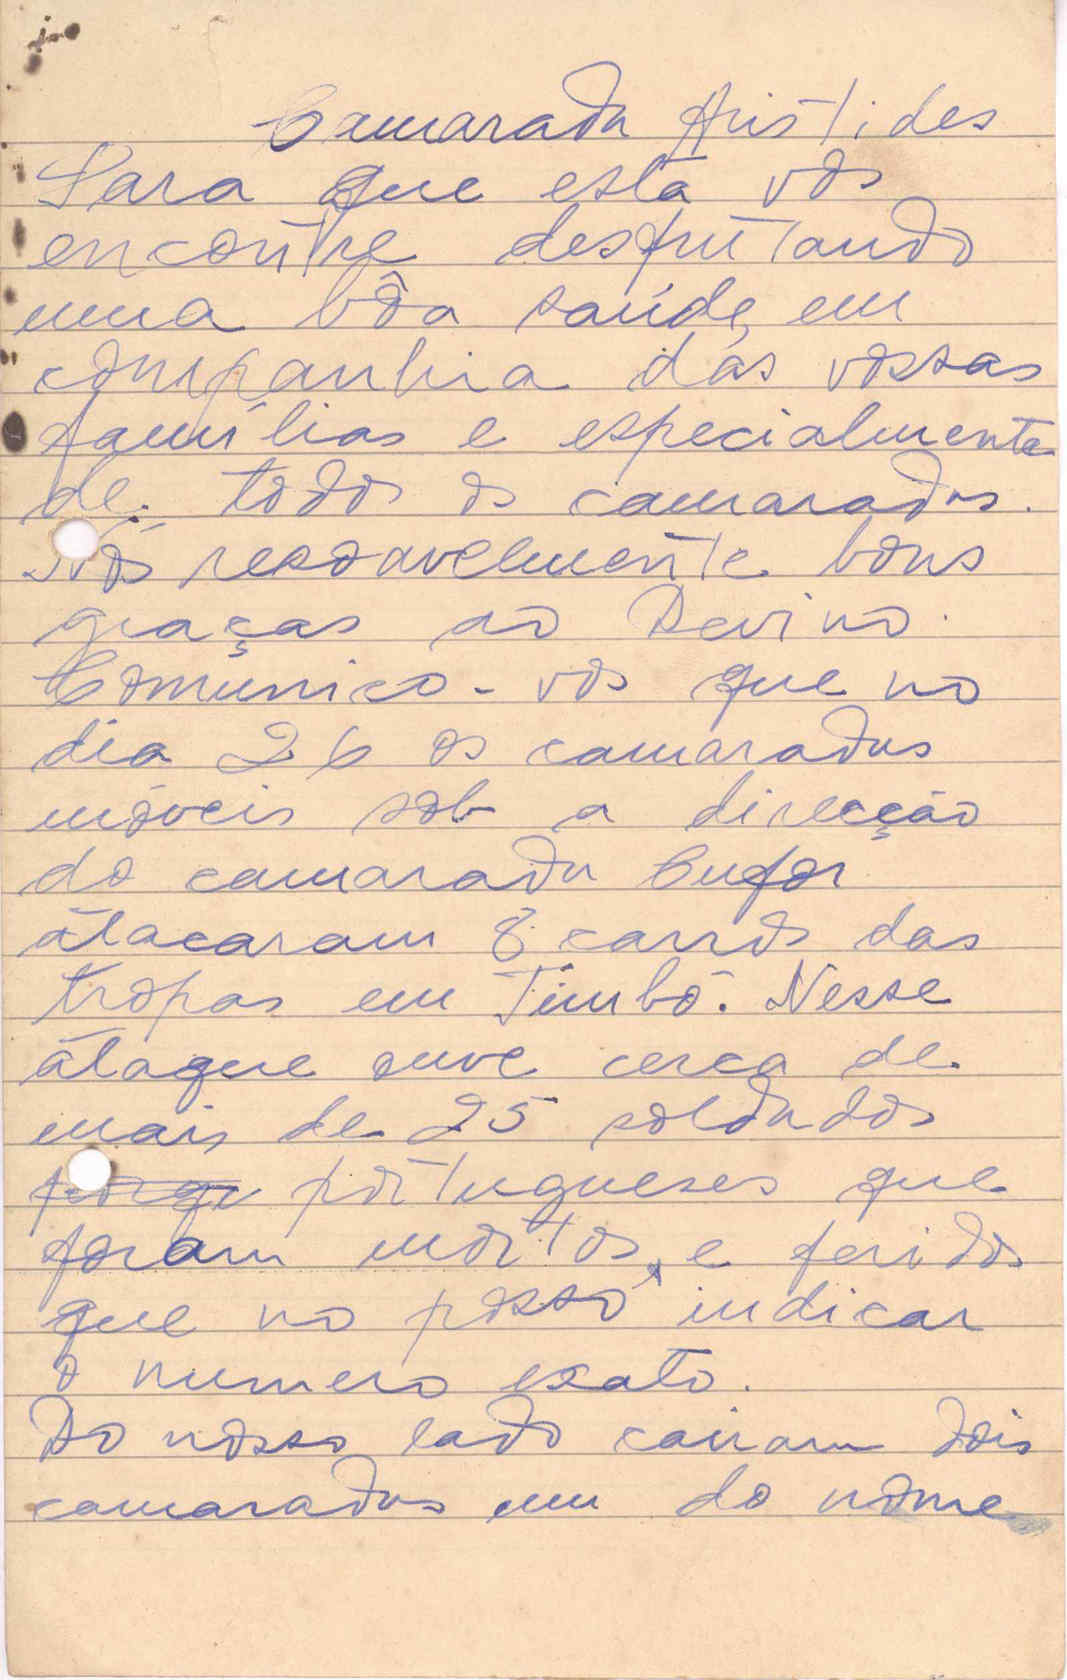 Camarada Aristides
Para que esta vos
encontre desfrutando
uma bôa saúde, em
companhia das vossas
famílias e especialmente
de todos os camaradas.
Nós resoavelmente bons
graças ao Devino.
Comunico-vos que no
dia 26 os camaradas
móveis sob a direcção
do camarada Bufor
atacaram 8 carros das
tropas em Timbó. Nesse
ataque ouve cerca de
mais de 25 soldados
porgu portugueses que
foram mortos, e feridos
que no posso indicar
o numero exato.
Do nosso lado cairam dois
camaradas um do nome